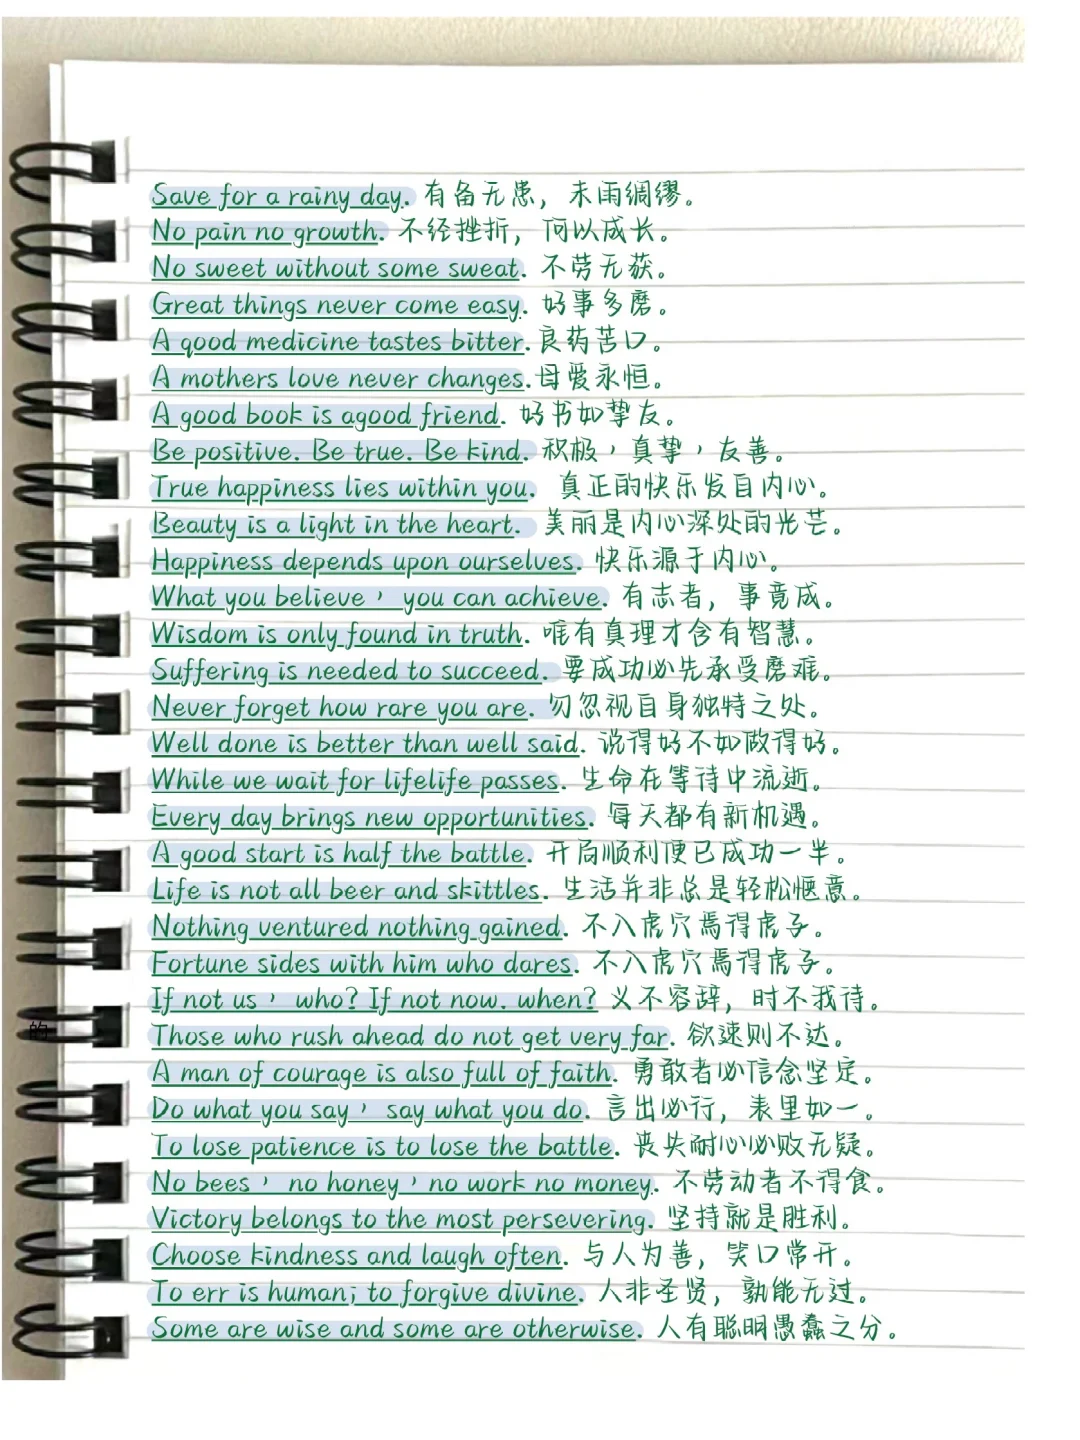 Save for a rainy day. 有备无患，未雨绸缪。
No pain no growth. 不经挫折，何以成长。
No sweet without some sweat. 不劳无获。
Great things never come easy. 好事多磨。
A good medicine tastes bitter. 良药苦口。
A mothers love never changes. 母爱永恒。
A good book is agood friend. 好书如挚友。
Be positive. Be true. Be kind. 积极，真挚，友善。
True happiness lies within you. 真正的快乐发自内心。
Beauty is a light in the heart. 美丽是内心深处的光芒。
Happiness depends upon ourselves. 快乐源于内心。
What you believe，you can achieve. 有志者，事竟成。
Wisdom is only found in truth. 唯有真理才含有智慧。
Suffering is needed to succeed. 要成功必先承受磨难。
Never forget how rare you are. 勿忽视自身独特之处。
Well done is better than well said. 说得好不如做得好。
While we wait for lifelife passes. 生命在等待中流逝。
Every day brings new opportunities. 每天都有新机遇。
A good start is half the battle. 开局顺利便已成功一半。
Life is not all beer and skittles. 生活并非总是轻松惬意。
Nothing ventured nothing gained. 不入虎穴焉得虎子。
Fortune sides with him who dares. 不入虎穴焉得虎子。
If not us，who? If not now. when? 义不容辞，时不我待。
的
Those who rush ahead do not get very far. 欲速则不达。
A man of courage is also full of faith. 勇敢者必信念坚定。
Do what you say，say what you do. 言出必行，表里如一。
To lose patience is to lose the battle. 丧失耐心必败无疑。
No bees，no honey，no work no money. 不劳动者不得食。
Victory belongs to the most persevering. 坚持就是胜利。
Choose kindness and laugh often. 与人为善，笑口常开。
To err is human; to forgive divine. 人非圣贤，孰能无过。
Some are wise and some are otherwise. 人有聪明愚蠢之分。